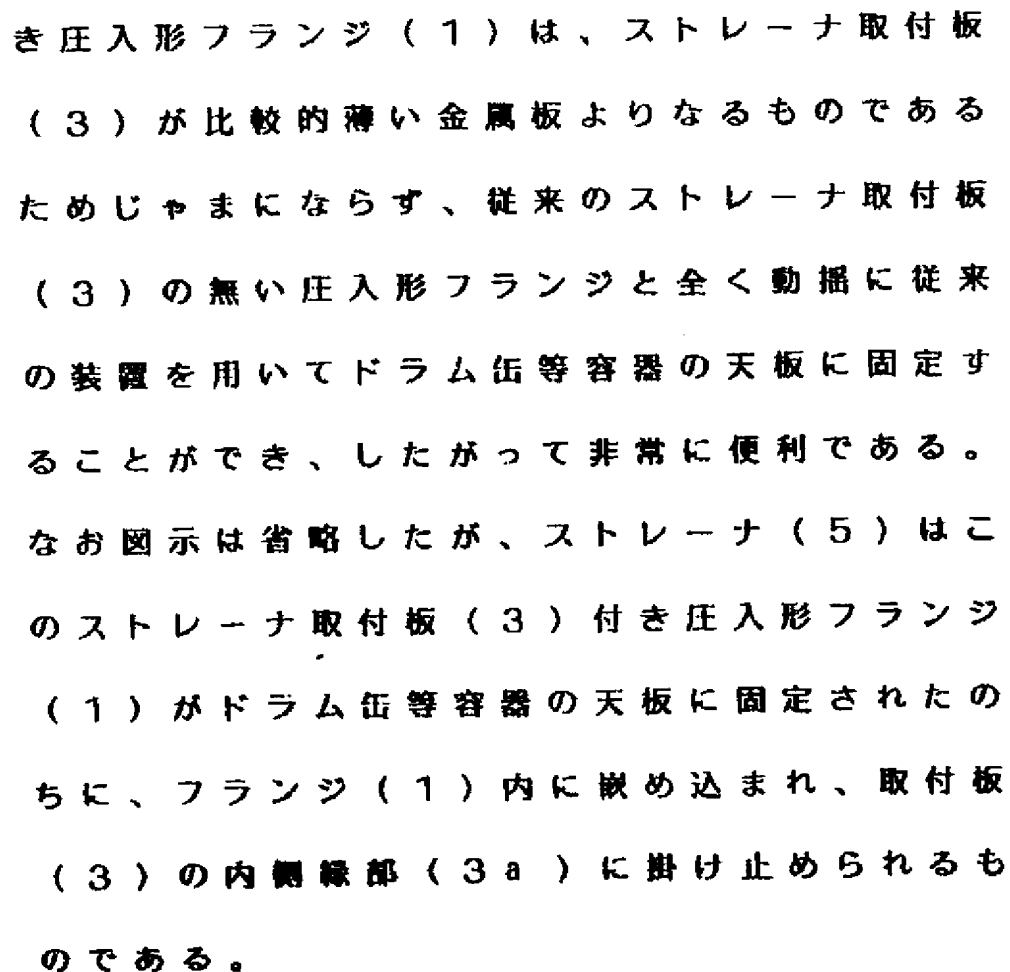 き圧入形フランジ(1)は、ストレーナ取付板
(3)が比較的薄い金属板よりなるものである
ためじゃまにならず、従来のストレーナ取付板
(3)の無い圧入形フランジと全く動揺に従来
の装置を用いてドラム缶等容器の天板に固定す
ることができ、したがって非常に便利である。
なお図示は省略したが、ストレーナ(5)はこ
のストレーナ取付板(3)付き圧入形フランジ
(1)がドラム缶等容器の天板に固定されたの
ちに、フランジ(1)内に嵌め込まれ、取付板
(3)の内側縁部(3a)に掛け止められるも
のである。